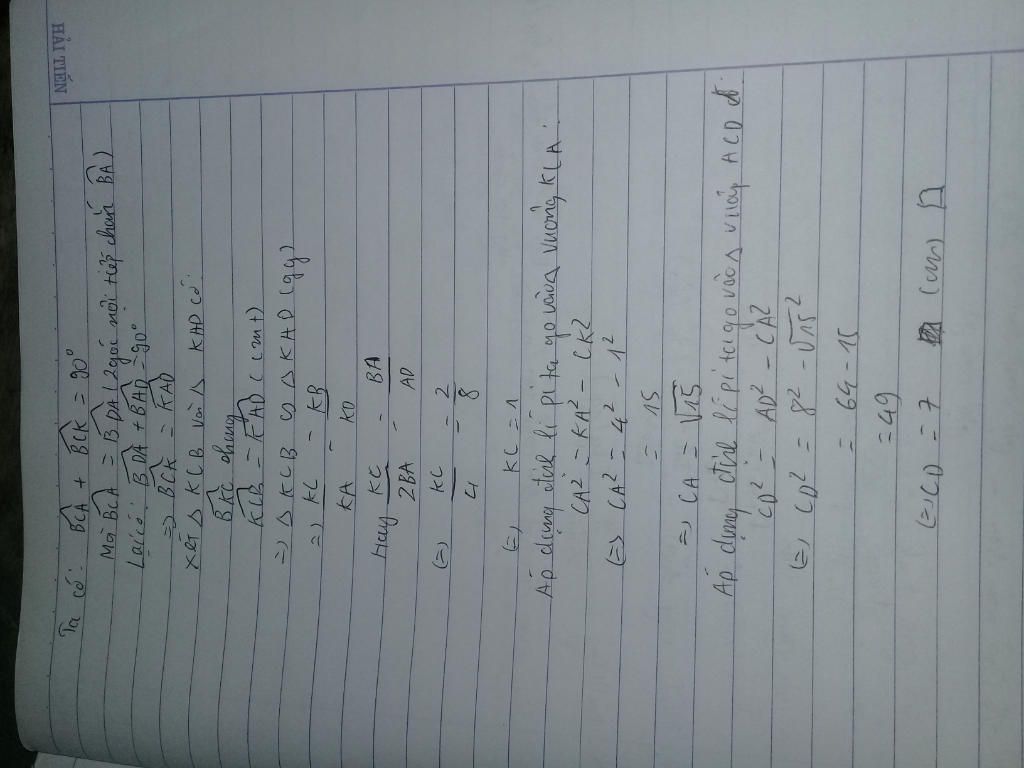 HẢI TIẾN
Ta có: BCA + BCK = 90°
Mà BCA = BDA (2 góc nội tiếp chắn BA)
Lại có: BDA + BAD = 90°
=> BCK = KAD
Xét Δ KCB và Δ KAD có:
BKC chung
KCB = KAD (cmt)
=> Δ KCB ∽ Δ KAD (gg)
=> KC/KA = KB/KD
Hay KC/2BA = BA/AD
(=) KC/4 = 2/8
(=) KC = 1
Áp dụng định lí pitago vào Δ vuông KCA:
CA² = KA² - CK²
(=) CA² = 4² - 1²
= 15
=> CA = √15
Áp dụng định lí pitago vào Δ vuông ACD
CD² = AD² - CA²
(=) CD² = 8² - √15²
= 64 - 15
= 49
(=) CD = 7 (cm)